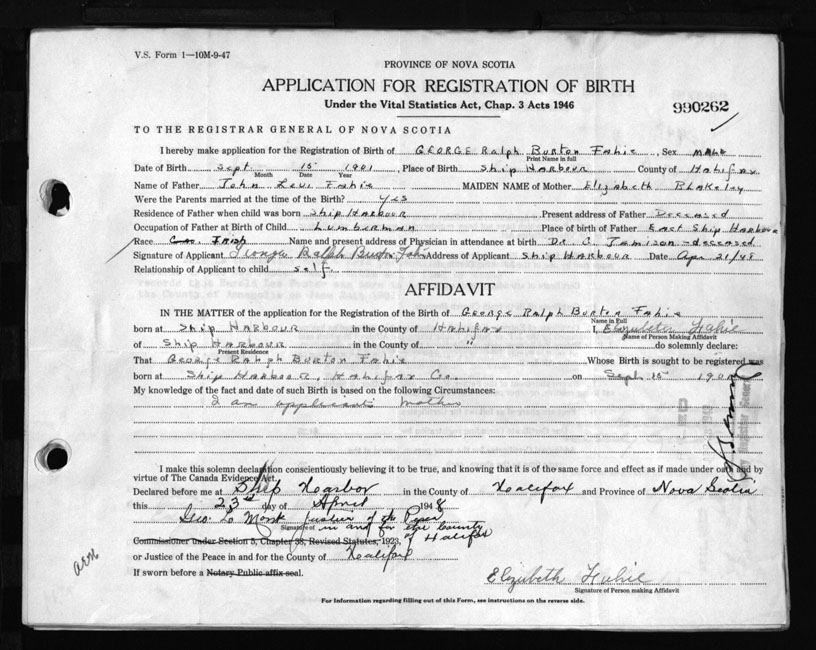 V.S. Form 1—10M-9-47
PROVINCE OF NOVA SCOTIA
APPLICATION FOR REGISTRATION OF BIRTH
Under the Vital Statistics Act, Chap. 3 Acts 1946
990262
TO THE REGISTRAR GENERAL OF NOVA SCOTIA
I hereby make application for the Registration of Birth of GEORGE Ralph Burton Fahie, Sex MALE
Print Name in full
Date of Birth Sept 15 1901, Place of Birth Ship HARBOUR County of Halifax
Month Date Year
Name of Father John Levi Fahie MAIDEN NAME of Mother Elizabeth Blakeley
Were the Parents married at time of the Birth? Yes
Residence of Father when child was born Ship Harbour Present address of Father Deceased
Occupation of Father at Birth of Child Lumberman Place of birth of Father East Ship Harbour
Race Irish Name and present address of Physician in attendance at birth Dr C. Jamison - deceased
Signature of Applicant George Ralph Burton Fahie Address of Applicant Ship Harbour Date Apr 21/48
Relationship of Applicant to child self
AFFIDAVIT
IN THE MATTER of the application for the Registration of the Birth of George Ralph Burton Fahie
Name in Full
born at Ship Harbour in the County of Halifax I, Elizabeth Fahie
Name of Person Making Affidavit
of Ship Harbour in the County of " do solemnly declare:
Present Residence
That George Ralph Burton Fahie Whose Birth is sought to be registered was
born at Ship Harbour, Halifax Co. on Sept 15 1901
My knowledge of the fact and date of such Birth is based on the following Circumstances:
I am applicants mother
I make this solemn declaration conscientiously believing it to be true, and knowing that it is of the same force and effect as if made under oath and by
virtue of The Canada Evidence Act.
Declared before me at Ship Harbor in the County of Halifax and Province of Nova Scotia
this 23rd day of April 1948
Geo. L. Monk Justice of the Peace
Signature of in and for the County
Commissioner under Section 5, Chapter 38, Revised Statutes, 1923, of Halifax
or Justice of the Peace in and for the County of Halifax
If sworn before a Notary Public affix seal.
Elizabeth Fahie
Signature of Person making Affidavit
For Information regarding filling out of this Form, see instructions on the reverse side.